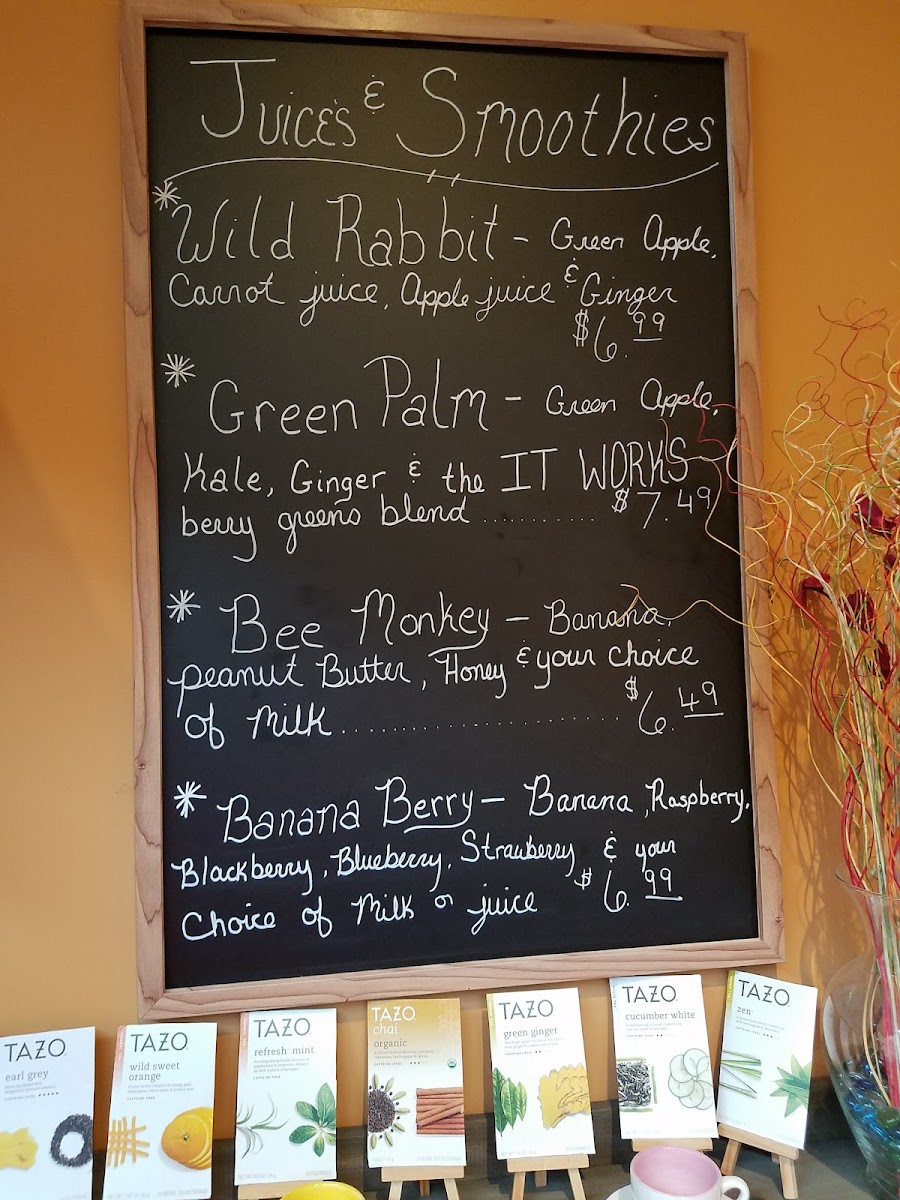 Juice's & Smoothies
* Wild Rabbit - Green Apple,
Carrot juice, Apple juice & Ginger
$6.99
* Green Palm - Green Apple,
Kale, Ginger & the IT WORKS
berry greens blend ............ $7.49
* Bee Monkey - Banana,
peanut Butter, Honey & your choice
of Milk ........................ $6.49
* Banana Berry - Banana, Raspberry,
Blackberry, Blueberry, Strawberry & your
Choice of Milk or juice $6.99
TAZO
earl grey
TAZO
wild sweet
orange
TAZO
refresh mint
TAZO
chai
organic
TAZO
green ginger
TAZO
cucumber white
TAZO
zen